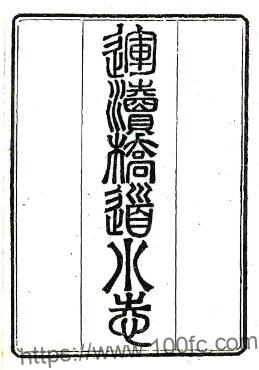 運瀆橋道小志
https://www.100fc.com